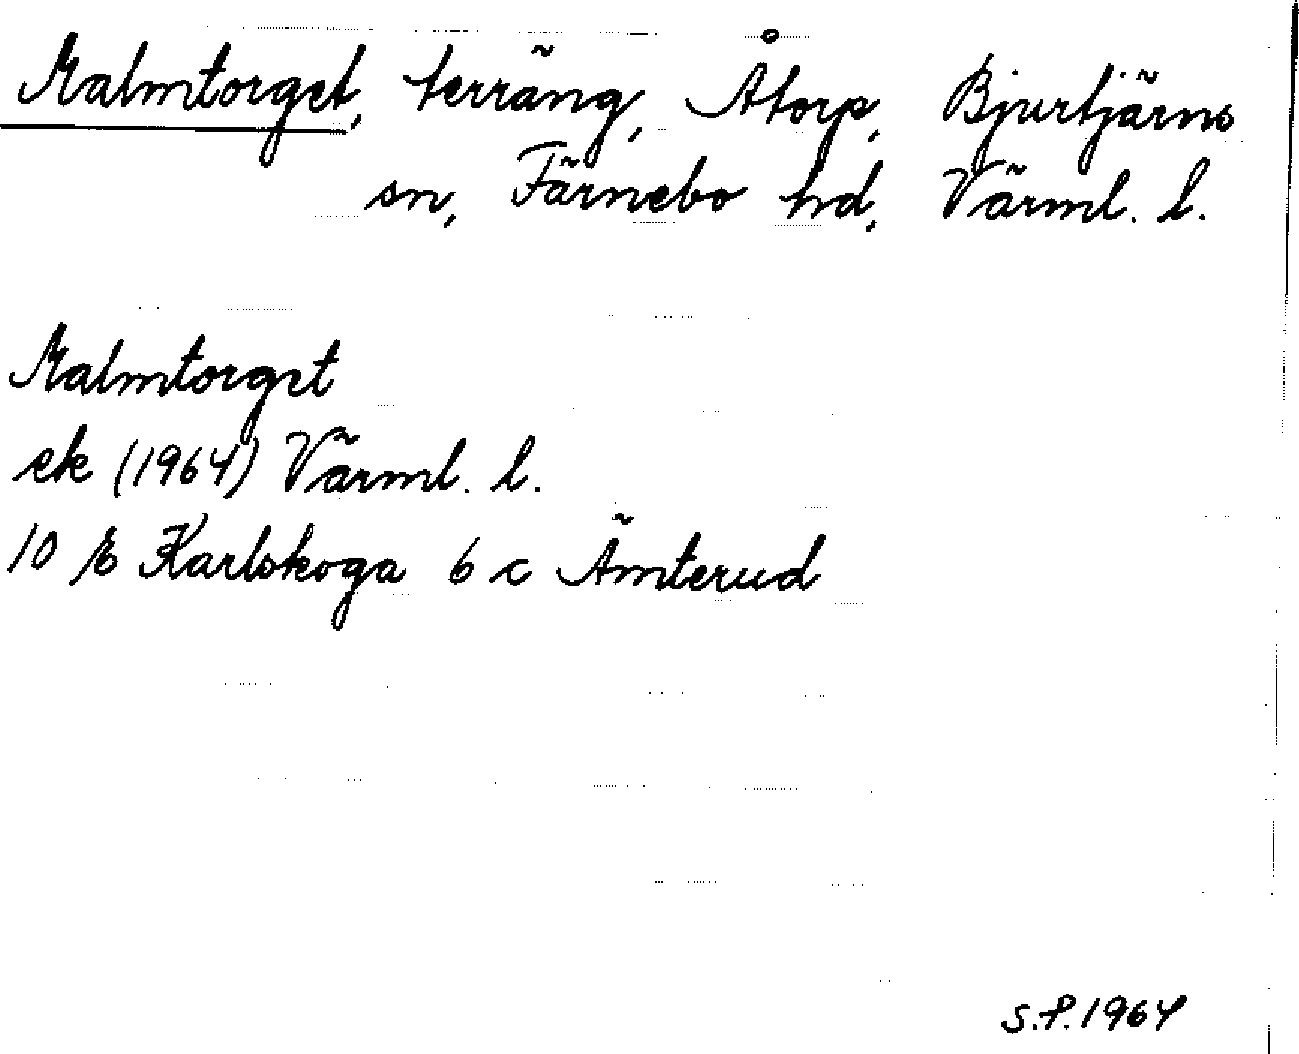 Malmtorget, terräng, Åtorp, Bjurtjärns
sn, Färnebo hd, Värml. l.
Malmtorget
ek (1964) Värml. l.
10 E Karlskoga 6 c Ämterud
S.P. 1964